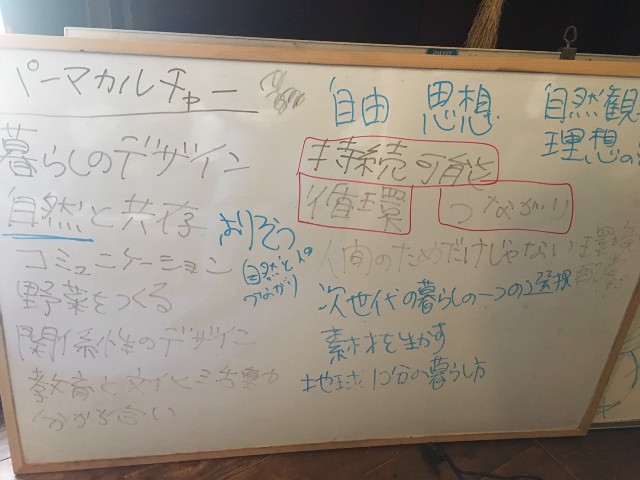 パーマカルチャー
暮らしのデザイン
自然と共存
よりそう
自然と人の
つながり
コミュニケーション
野菜をつくる
関係性のデザイン
教育と文化活動
分かち合い
自由 思想 自然観
理想の
持続可能
循環 つながり
人間のためだけじゃない 環境
次世代の暮らしの一つの選択
素材を生かす
地球1コ分の暮らし方